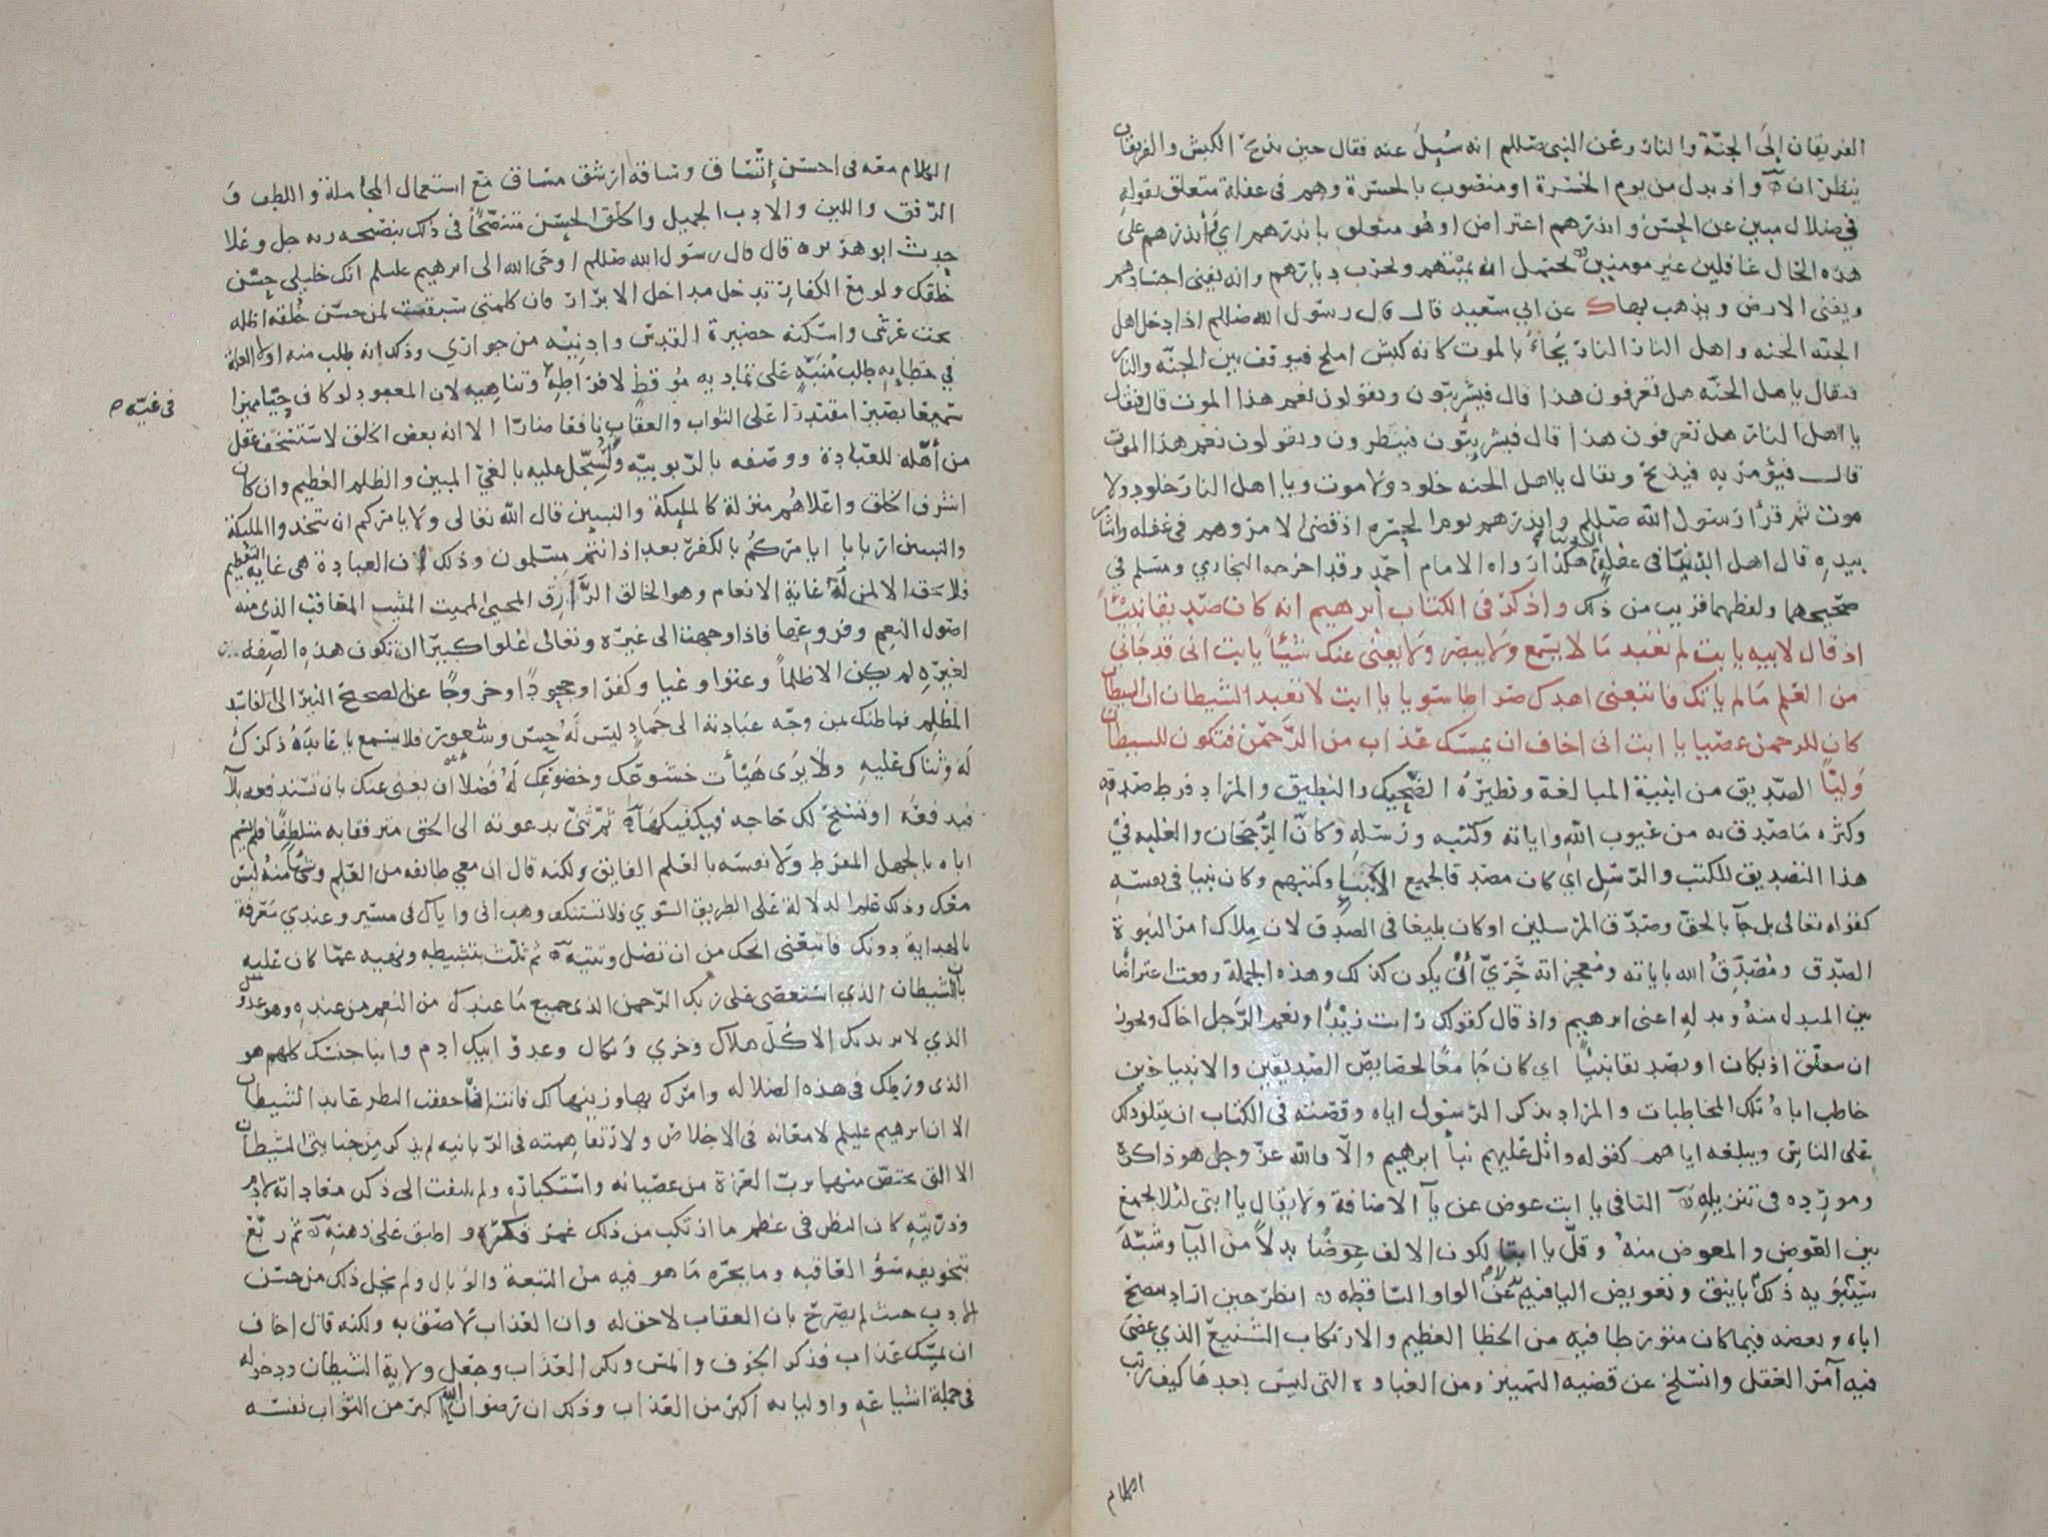 الفريقان إلى الجنة والنار وعن النبي صللم انه سُئِلَ عنه فقال حين يذبح الكبش والفريقان
ينظران ۞ واذ بدل من يوم الحسرة او منصوب بالحسرة وهم في غفلة متعلق بقوله
في ضلال مبين عن الحسن وانذرهم اعتراض او هو متعلق بانذرهم اي وأنذرهم على
هذه الحال غافلين غير مومنين ۞ يحتمل انه يميتهم ويخرب ديارهم وانه يفنى اجسادهم
ويفنى الارض ويذهب بها ك عن ابي سعيد قال قال رسول الله صللم اذا دخل اهل
الجنه الجنه واهل النار النار يُجاءُ بالموت كانه كبش املح فيوقف بين الجنه والنار
فيقال ياهل الجنّه هل تعرفون هذا قال فيشريبّون ويقولون نعم هذا الموت قال فيقال
يا اهل النار هل تعرفون هذا قال فيشريبّون فينظرون ويقولون نعم هذا الموت
قال فيؤمر به فيذبح ويقال يا اهل الجنه خلود ولا موت ويا اهل النار خلود ولا
موت ثم قرأ رسول الله صللم وانذرهم يوم الحسره اذ قضى الامر وهم في غفله واشار
بيده قال اهل الدنيا في غفلة الدنيا هكذا رواه الامام أحمد وقد اخرجه البخاري ومسلم في
صحيحيهما ولفظهما قريب من ذلك واذكر في الكتاب ابرهيم انه كان صديقا نبيّاً
اذ قال لابيه يابت لم تعبد مَا لا يسمع ولا يبصر ولا يغنى عنك شيئاً يابت انى قد جانى
من العلم مَا لم ياتك فاتبعنى اهدك صراطا سويا يا ابت لا تعبد الشيطان ان الشيطان
كان للرحمن عصيا يا ابت انى اخاف ان يمسك عذاب من الرّحمٰن فتكون للشيطان
وَليّاً الصديق من ابنية المبالغة ونظيره الضحيك والنطيق والمراد فرط صدقه
وكثره مَا صدق به من غيوب الله واياته وكتبه ورسله وكانّ الرّجحان والغلبه في
هذا التصديق للكتب والرّسل اي كان مصدقا لجميع الانبيا وكتبهم وكان نبيا فى نفسه
كقوله تعالى بل جآ بالحق وصدّق المرسلين او كان بليغا فى الصدق لان مِلاك امر النبوة
الصّدق ومُصَدّقُ الله باياته ومعجزاته حَرِيّ أنْ يكون كذلك وهذه الجملة وقعت اعتراضا
بين المبدل منهُ وبدله اعنى ابرهيم واذ قال كقولك رايت زيداً ونعم الرّجل اخاك ويجوز
ان يتعلّق اذ بكان او بصديقا نبيّاً اي كان جَامعًا لخصايص الصديقين والانبيا حين
خاطب اباهُ تلك المخاطبات والمراد بذكر الرسول اياه وقصّته فى الكتاب ان يتلو ذلك
على الناس ويبلغه اياهم كقوله واتل عليهم نبأ ابرهيم والّا فالله عزّ وجل هو ذاكره
ومورده فى تنزيله ۞ التا فى يا ابت عوض عن يآ الاضافة ولا يقال يا ابتى لئلا يجمع
بين العوض والمعوض منهُ وقلّ يا ابتا لكون الالف عِوضًا بدلاً من اليآ وشبّه
سيبويه ذلك باينق وتعويض اليا فيه عن الواو السّاقطه ۞ انظر حين اراد ينصح
اباه ويعضه فيما كان متورطا فيه من الخطا العظيم والارتكاب الشنيع الذي عصى
فيه آمر العقل وانسلخ عن قضيه التمييز ومن الغباوه التى ليس بعدها كيف رتب
الكلام
الكلام معه فى احسن إتّساق وساقه ارشق مساق مع استعمال المجاملة واللطف و
الرّفق واللين والادب الجميل والخلق الحسن منتصحًا فى ذلك بنصيحه ربه جل وعلا
حدث ابو هريره قال قال رسول الله صللم اوحى الله الى ابرهيم عليلم انك خليلى حسّن
خلقك ولو مع الكفار تدخل مداخل الابرار فان كلمتى سبقت لمن حسن خُلقه اظله
تحت عرشى واسكنه حضيرة القدس وادنيه من جواري وذلك انه طلب منه اولا العلة
في خطابه طلب مُنبّهٍ على تماديه مُوقظ لافراطه وتناهيه لان المعبود لو كان حيّا مميزا
في غيّه ص
سميعا بصيرا مقتدرا على الثواب والعقاب نافعا ضارّا الا انه بعض الخلق لاستسخف عقل
من أهّله للعبادة ووصفه بالربوبيّه ولسُجّل عليه بالغيّ المبين والظلم العظيم وان كان
اشرف الخلق واعلاهُم منزلة كالمليكة والنبيين قال الله تعالى ولا يامركم ان تتخذوا المليكة
والنبيين اربابا ايامركُم بالكفر بعد اذ انتم مسلمون وذلك لان العبادة هى غاية التعظيم
فلا تحق الا لمن لهُ غاية الانعام وهو الخالق الرَّازِق المحيي المميت المثيب المعاقب الذى منه
اصول النعِم وفروعها فاذا وجهت الى غيره وتعالى علوا كبيرًا ان تكون هذه الصِّفه
لغيره لم يكن الا ظلماً وعتوا وغيا وكفرا وجحودًا وخروجًا عن الصحيح النير الى الفاسد
المظلم فما ظنك بمن وجّه عبادته الى جَمادٍ ليس لهُ حِسّ وشعور فلا يسمع يا عابدَهُ ذكرك
لهُ وثناك عليه ولا يَرَى هَيْأت خشوعك وخضوعك لهُ فضلاً ان يغنى عنك بان تستدفعه بلآ
فيدفعَه او تسنح لك حَاجه فيكفيكهَا ۞ ثم ثنّى بدعوته الى الحق مترفقا به متلطفًا فلم يسم
اباه بالجهل المفرط ولا نفسَه بالعلم الفايق ولكنه قال ان معي طائفه من العلم وشيًا منهُ ليس
معك وذلك علم الدلالة على الطريق السّوي فلا تستنكف وهب انى واياك فى مسير وعندي معرفة
بالهداية دونك فاتبعْنى انجك من ان تضل وتتيه ۞ ثم ثلّث بتثبيطه ونهيه عمّا كان عليه
بان الشيطان الذي استعصى على ربك الرّحمن الذى جميع مَا عندك من النعم من عنده وهو عدوّ
الذي لا يريد بك الا كُلّ هلاك وخزي ونكال وعدوّ ابيك ادم وابنا جنسك كلهم هو
الذى ورطك فى هذه الضلاله وامرك بها وزينها لك فانت ان حققت النظر عابد الشيطان
الا ان ابرهيم عليلم لامعانه فى الاخلاص ولارتقا همته فى الربانيه لم يذكر من جنايتى الشيطان
الا التى يختصّ منهما برب العزة من عصيانه واستكباره ولم يلتفت الى ذكر معاداته لادم
وذرّيته كان النظر فى عظم ما ارتكب من ذلك غمر فكره واطبق على ذهنه ۞ ثم ربّع
بتخويفه سُوُّ العاقبه وما يجرّه مَا هو فيه من التبعة والوبال ولم يخل ذلك من حسن
الادب حيث لم يصرّح بان العقاب لاحق له وان العذاب لاصق به ولكنه قال اخاف
ان يمسّك عذاب فذكر الخوف والمس ونكر العذاب وجعل ولاية الشيطان ودخوله
فى جملة اشياعه واوليائه اكبر من العذاب وذلك ان رضوان الله اكبر من الثواب نفسه